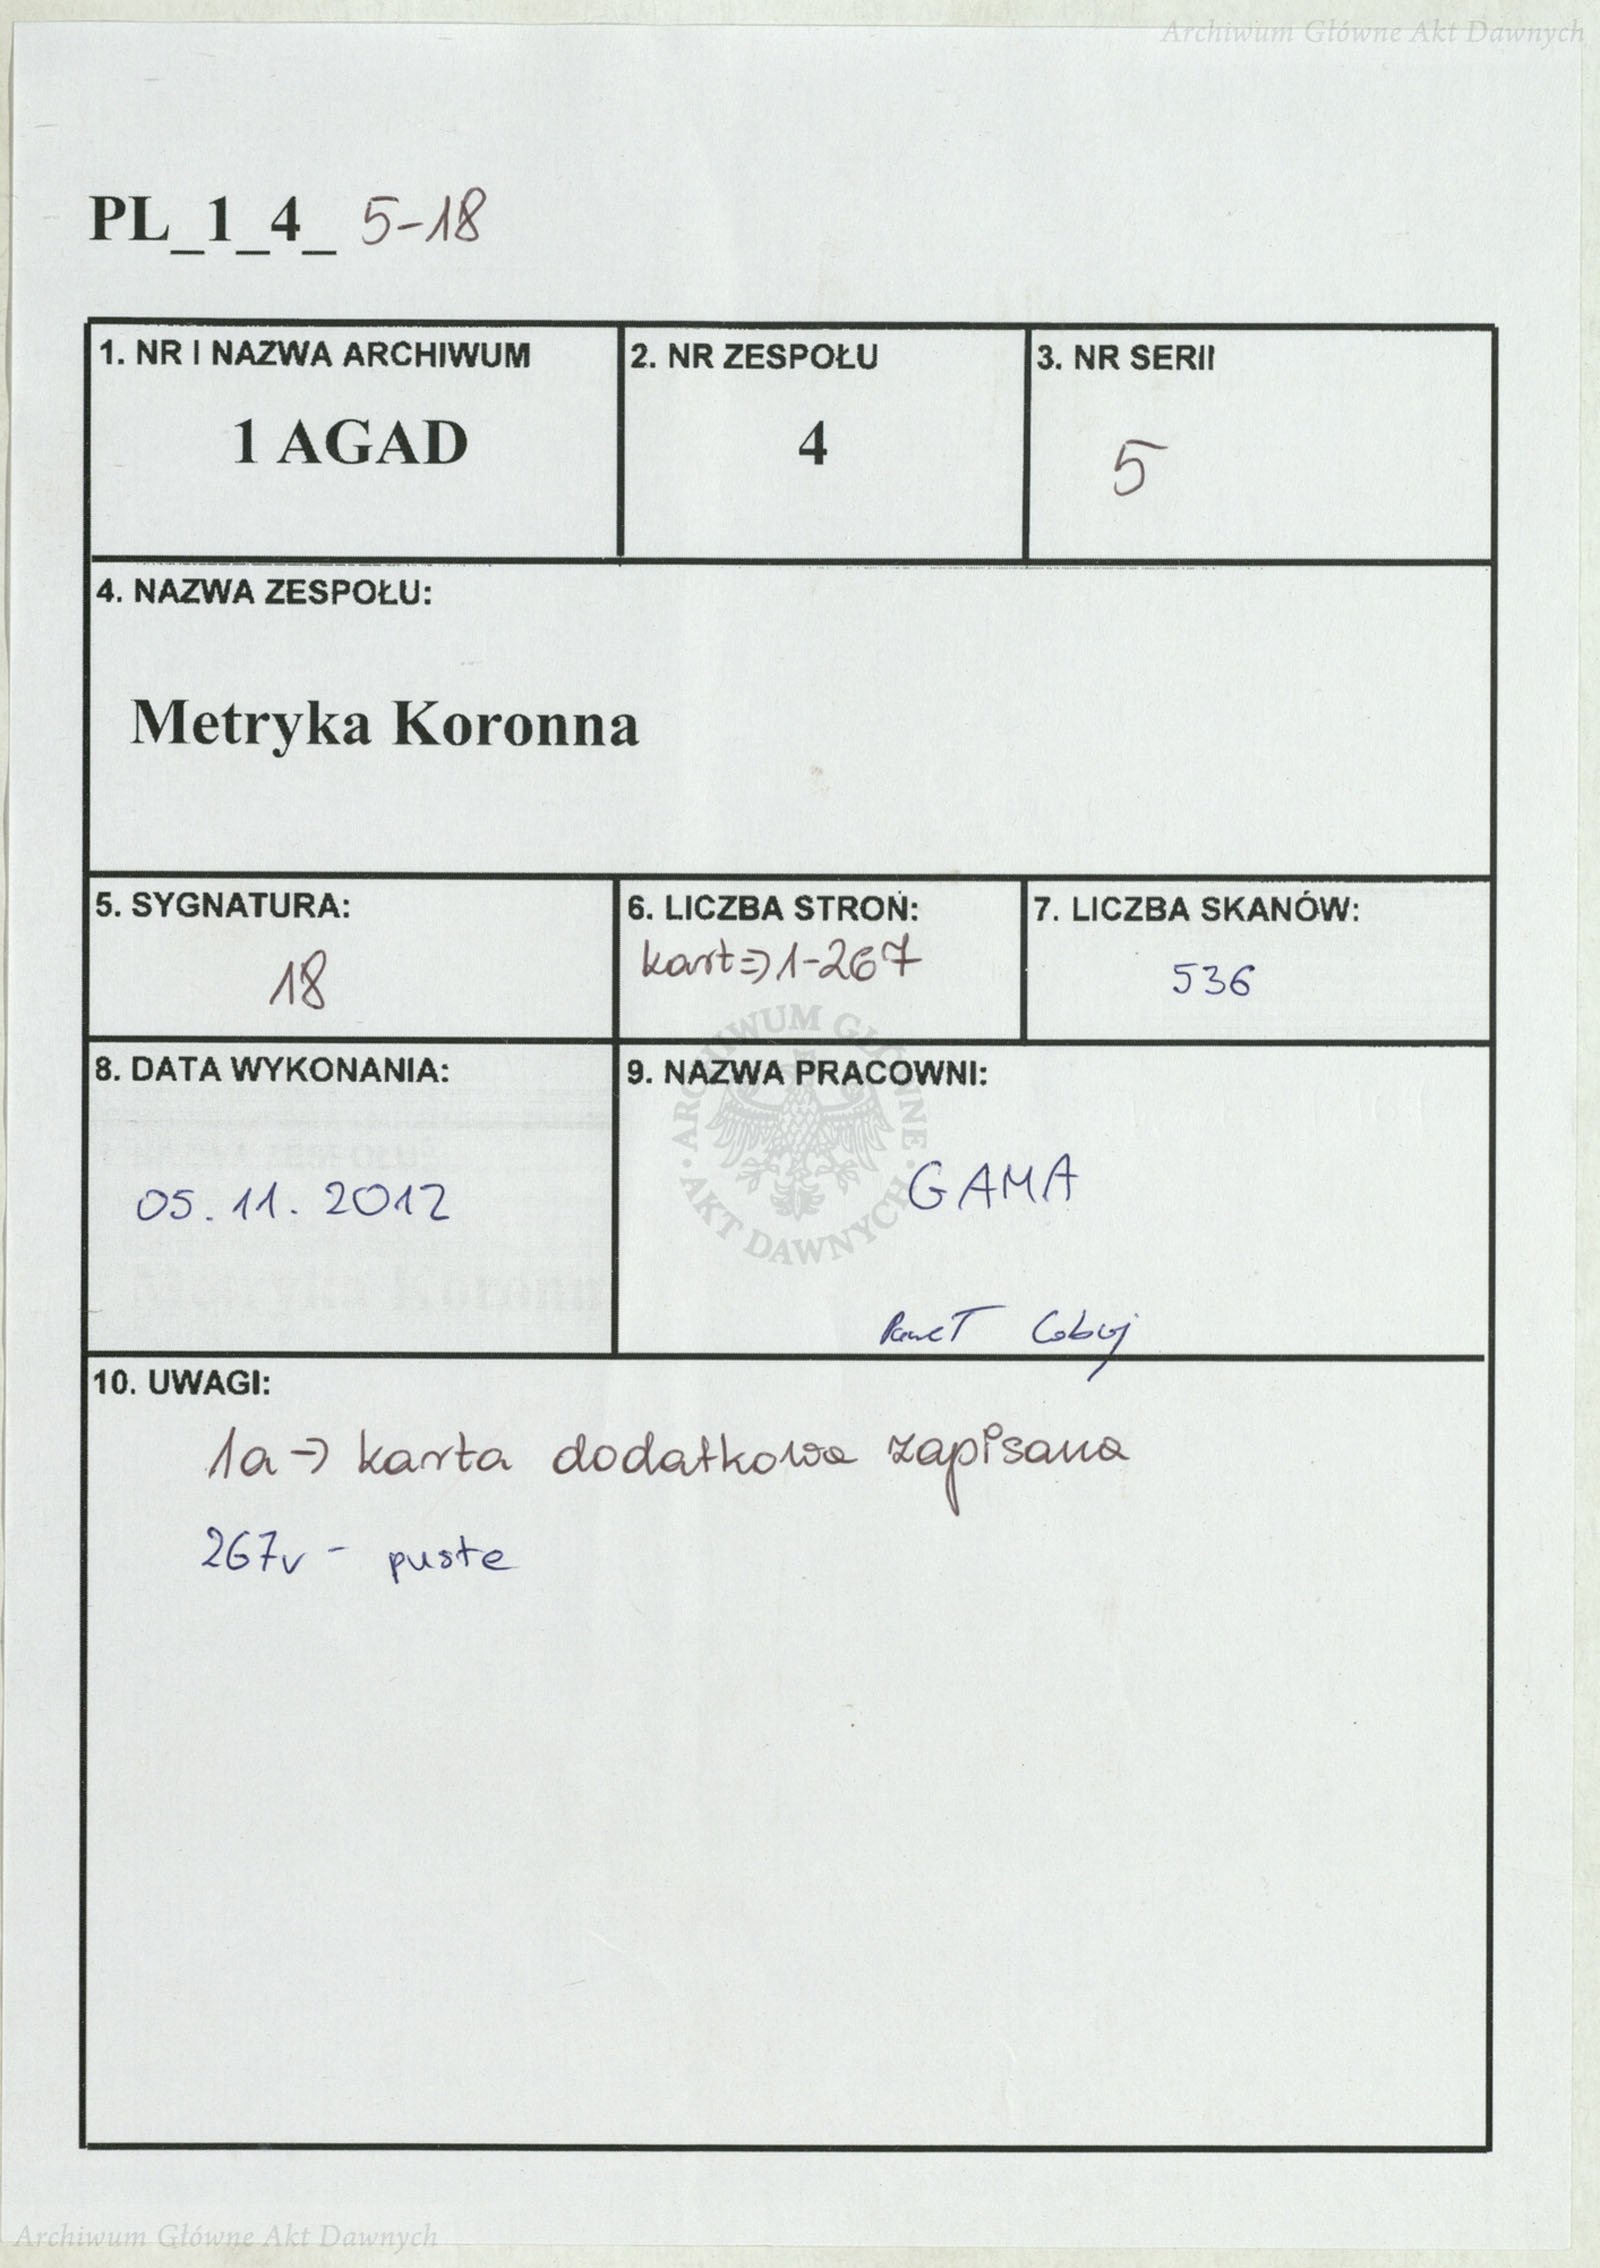 Archiwum Główne Akt Dawnych
PL_1_4_ 5-18
1. NR I NAZWA ARCHIWUM
1 AGAD
2. NR ZESPOŁU
4
3. NR SERII
5
4. NAZWA ZESPOŁU:
Metryka Koronna
5. SYGNATURA:
18
6. LICZBA STRON:
kart => 1-267
7. LICZBA SKANÓW:
536
8. DATA WYKONANIA:
05.11.2012
9. NAZWA PRACOWNI:
GAMA
Paweł
ARCHIWUM GŁÓWNE · AKT DAWNYCH ·
10. UWAGI:
1a -> karta dodatkowa zapisana
267v - puste
Archiwum Główne Akt Dawnych